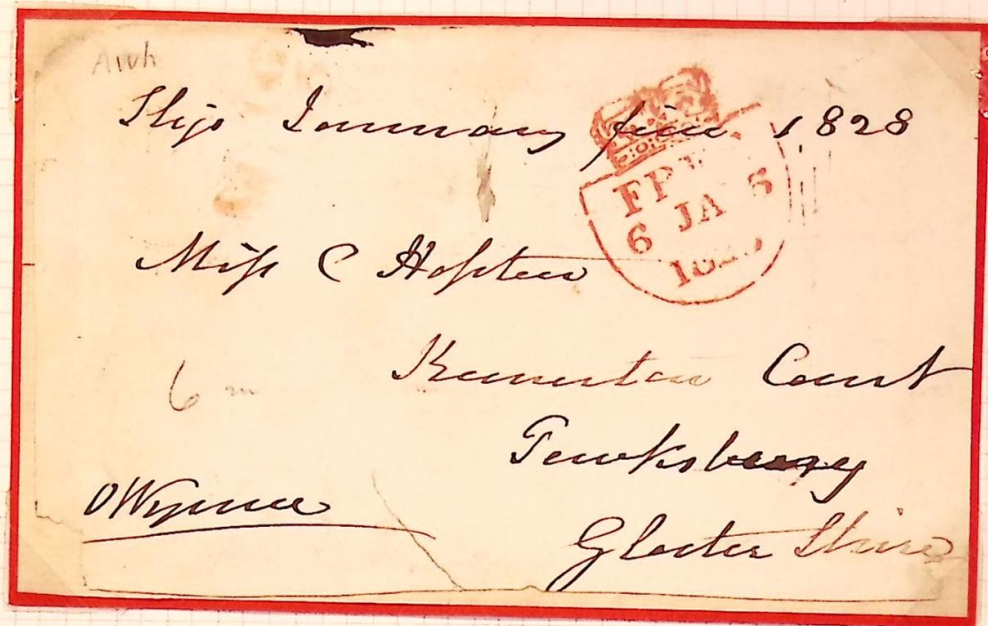 Sligo January five 1828
6 JA 6
Miss C Hopton
Kemerton Court
6
Tewksbury
OWynne
Gloster Shire